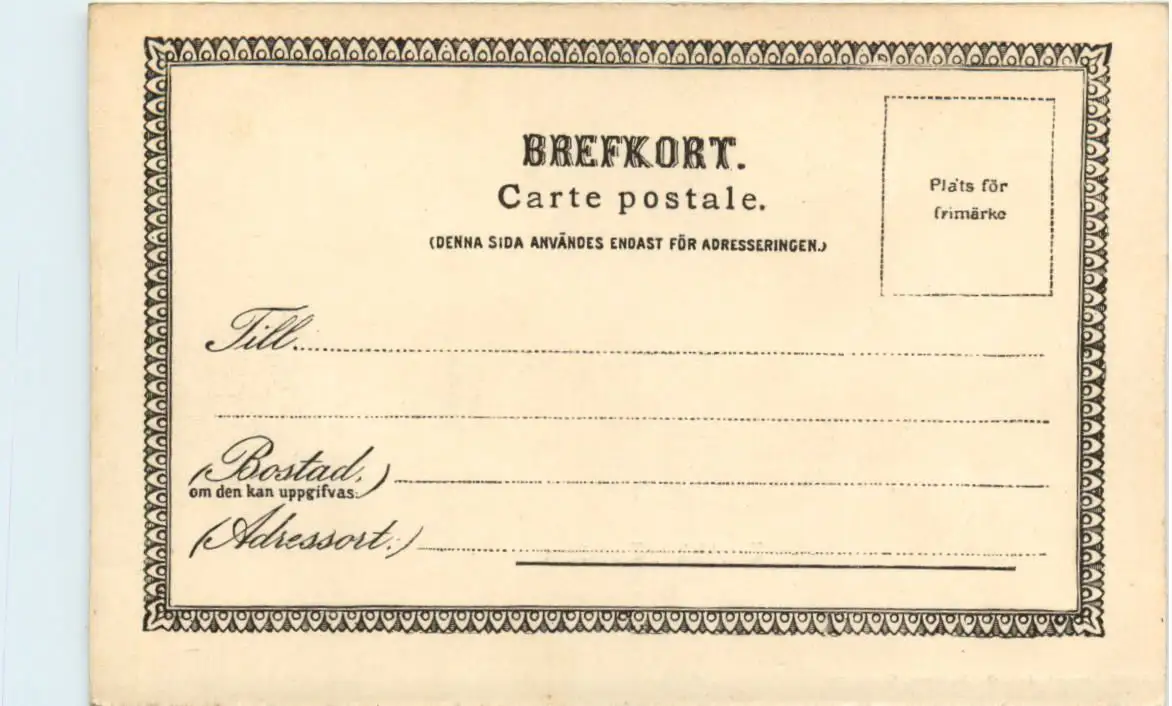 BREFKORT.
Carte postale.
(DENNA SIDA ANVÄNDES ENDAST FÖR ADRESSERINGEN.)
Plats för
frimärke
Till
(Bostad,)
om den kan uppgifvas:
(Adressort:)